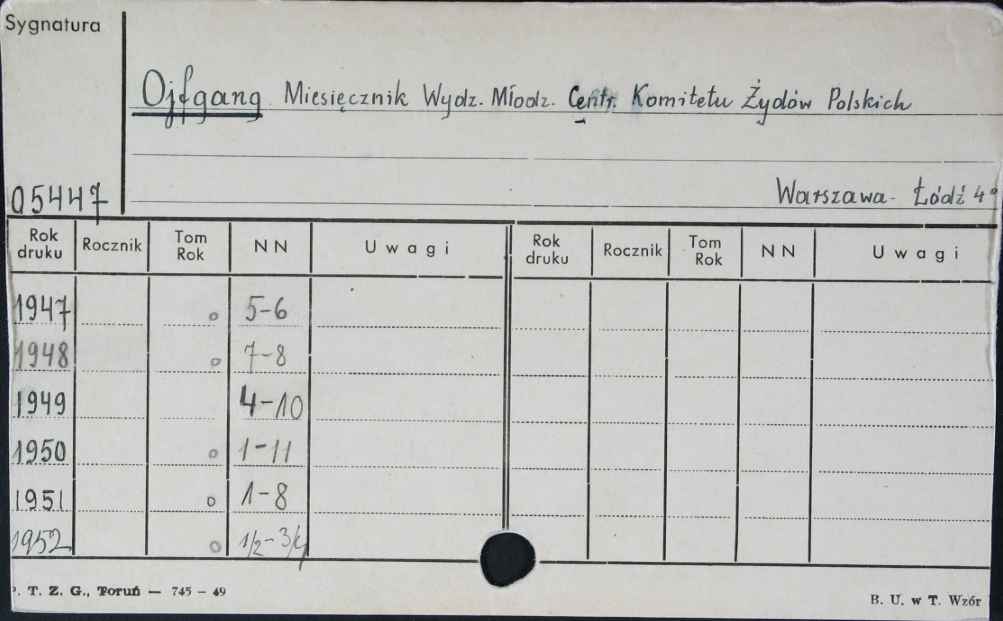 Sygnatura
Ojfgang Miesięcznik Wydz. Młodz. Centr. Komitetu Żydów Polskich
05447
Warszawa - Łódź 4°
Rok druku Rocznik Tom Rok NN Uwagi Rok druku Rocznik Tom Rok NN Uwagi
1947 o 5-6
1948 o 7-8
1949 4-10
1950 o 1-11
1951 o 1-8
1952 o 1/2-3/4
. T. Z. G., Toruń — 745 – 49
B. U. w T. Wzór